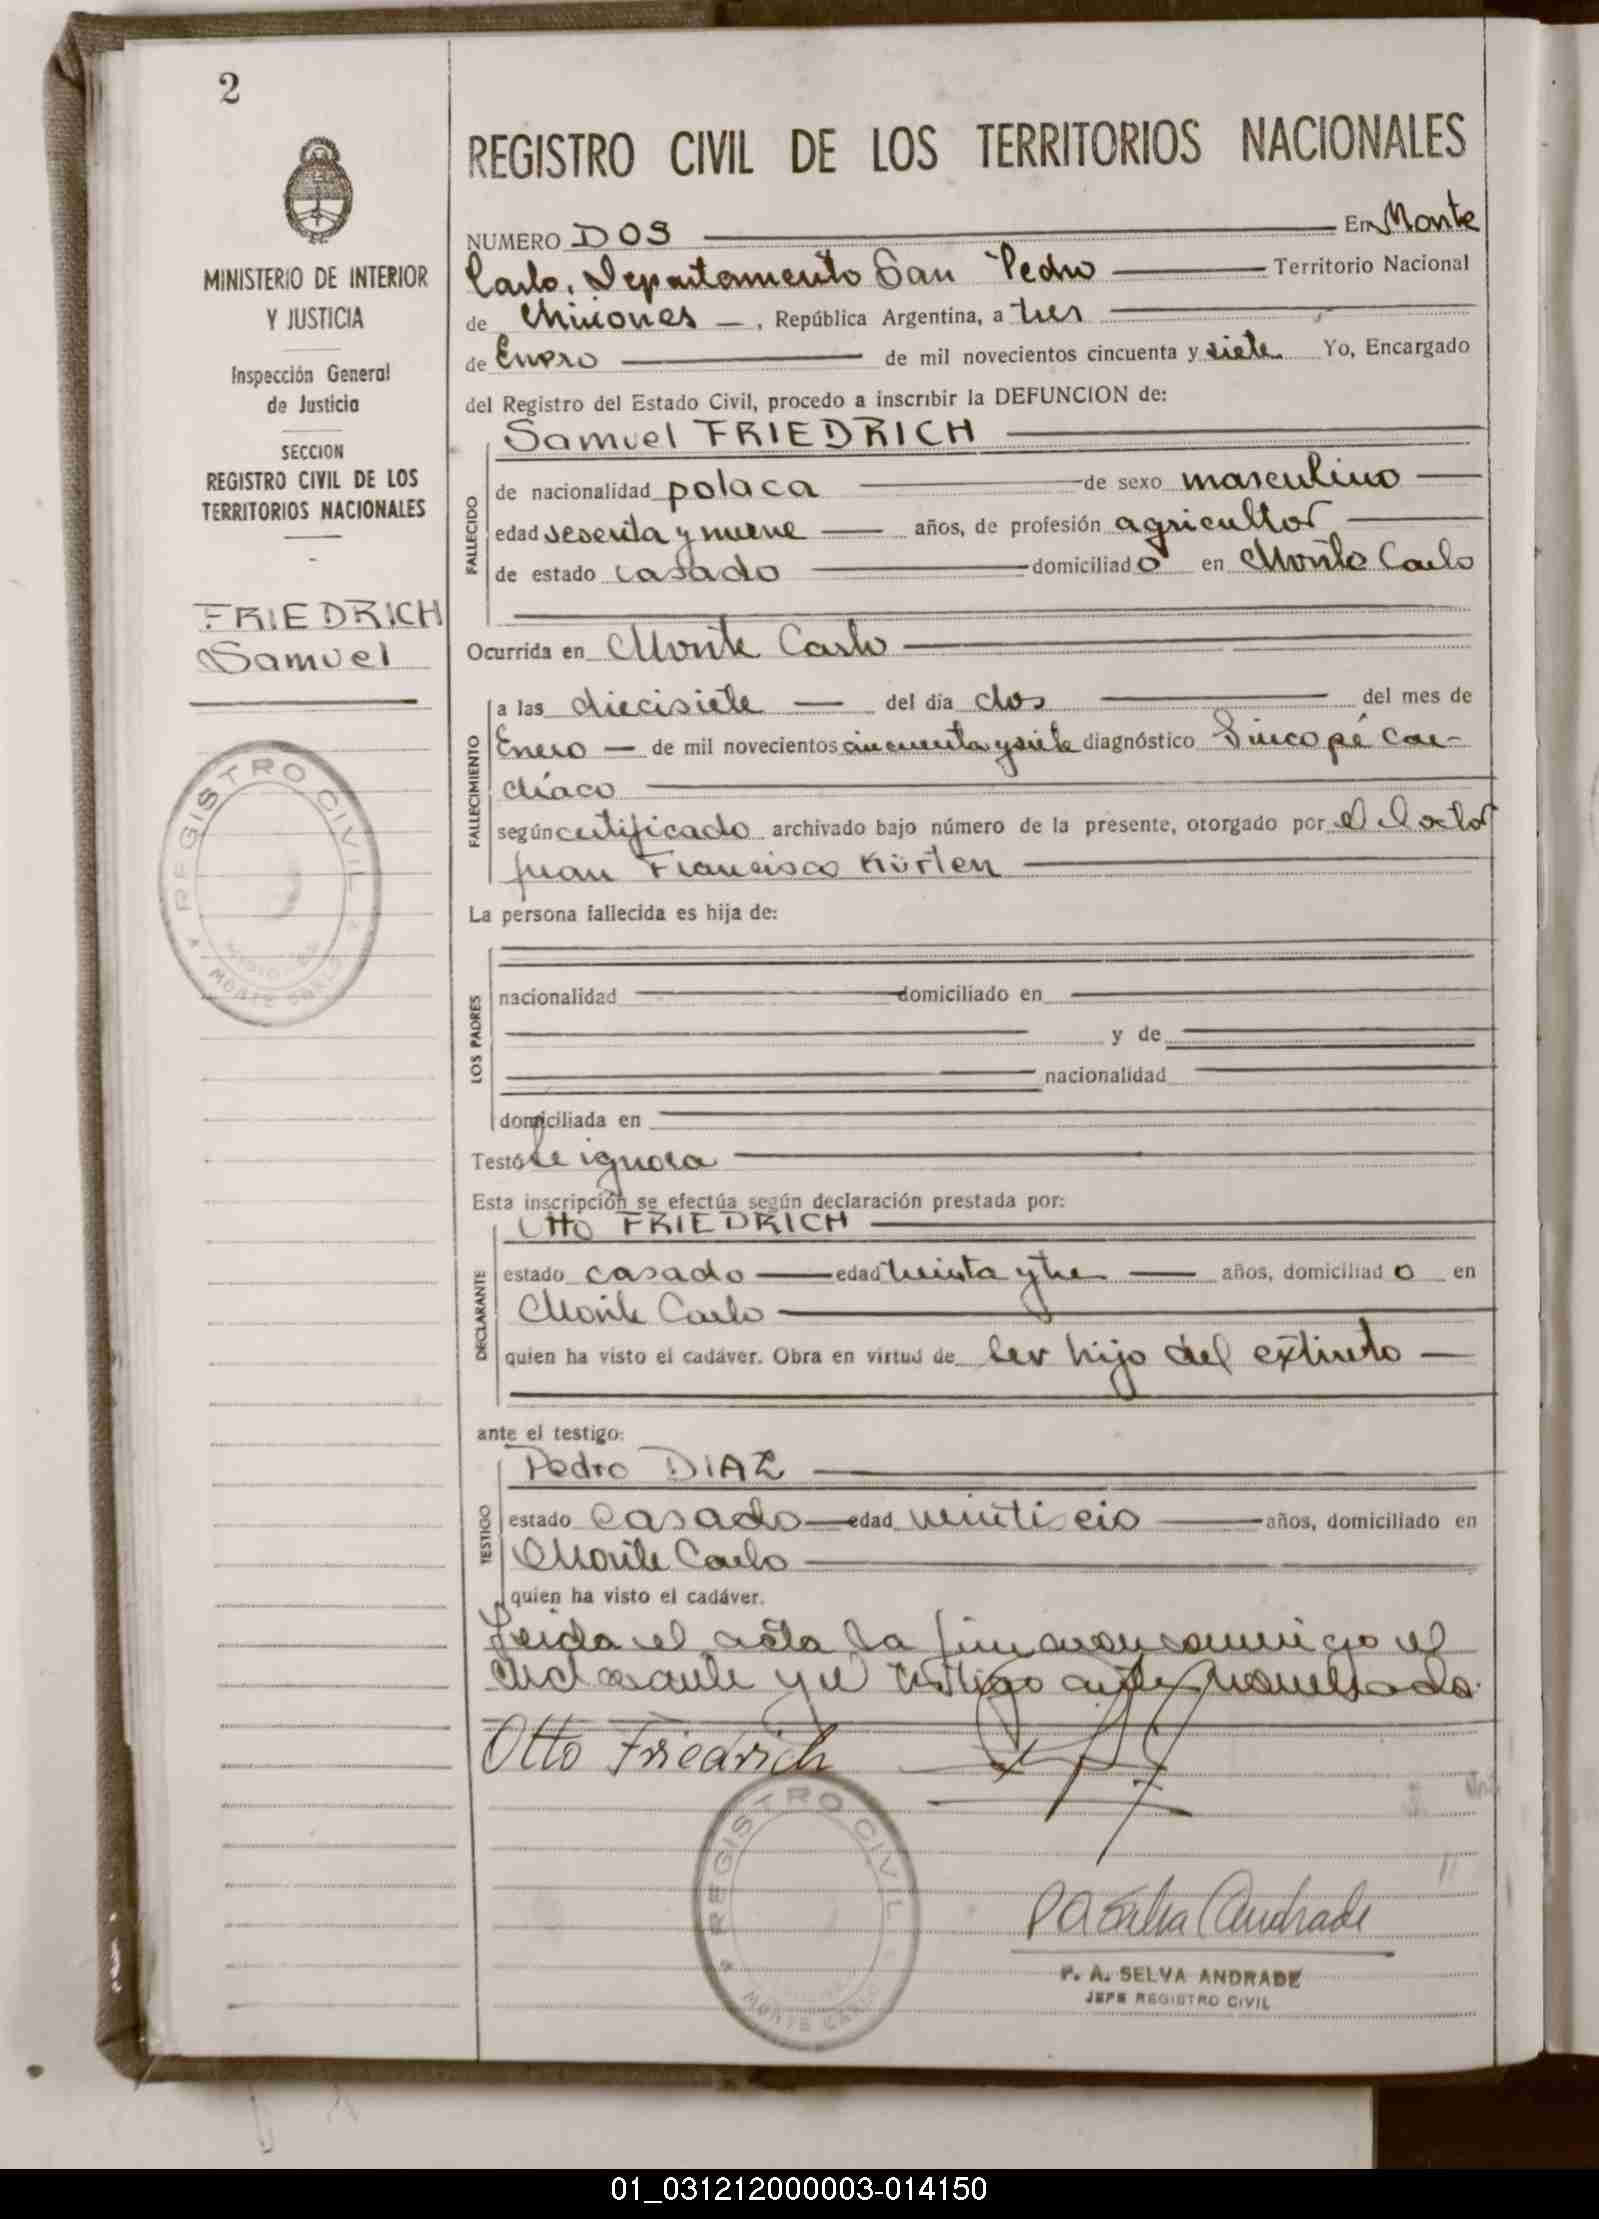 2
REGISTRO CIVIL DE LOS TERRITORIOS NACIONALES
MINISTERIO DE INTERIOR
Y JUSTICIA
Inspección General
de Justicia
SECCION
REGISTRO CIVIL DE LOS
TERRITORIOS NACIONALES
FRIEDRICH
Samuel
REGISTRO CIVIL
MONTE CARLO
NUMERO DOS En Monte
Carlo, Departamento San Pedro Territorio Nacional
de Misiones, República Argentina, a tres
de Enero de mil novecientos cincuenta y siete Yo, Encargado
del Registro del Estado Civil, procedo a inscribir la DEFUNCION de:
Samuel FRIEDRICH
FALLECIDO
de nacionalidad polaca de sexo masculino
edad sesenta y nueve años, de profesión agricultor
de estado casado domiciliado en Monte Carlo
Ocurrida en Monte Carlo
FALLECIMIENTO
a las diecisiete del día dos del mes de
Enero de mil novecientos cincuenta y siete diagnóstico Sincopé car-
díaco
según certificado archivado bajo número de la presente, otorgado por el doctor
Juan Francisco Kürten
La persona fallecida es hija de:
LOS PADRES
nacionalidad domiciliado en
y de
nacionalidad
domiciliada en
Testó Se ignora
Esta inscripción se efectúa según declaración prestada por:
Otto FRIEDRICH
DECLARANTE
estado casado edad treinta y tre años, domiciliado en
Monte Carlo
quien ha visto el cadáver. Obra en virtud de ser hijo del extinto
ante el testigo:
Pedro DIAZ
TESTIGO
estado Casado edad veinticeis años, domiciliado en
Monte Carlo
quien ha visto el cadáver.
Leida el acta la firmaron conmigo el
declarante y el testigo
Otto Friedrich
REGISTRO CIVIL
MONTE CARLO
P A Selva Andrade
P. A. SELVA ANDRADE
JEFE REGISTRO CIVIL
01_031212000003-014150